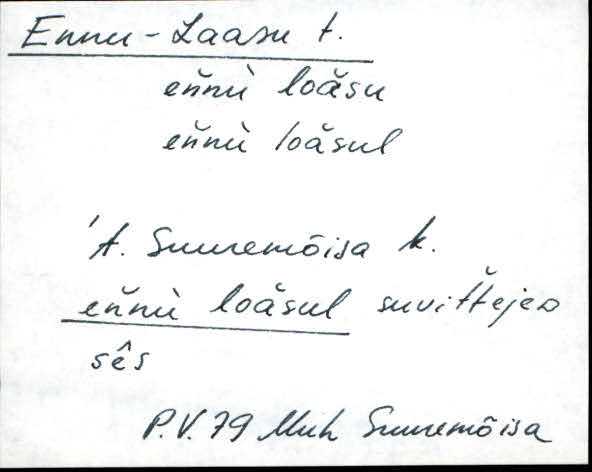 Ennu-Laasu t.
eňnù loăsu
eňnù loăsul
'A. Suuremõisa k.
eňnù loăsul suvitťejeᴅ
sês
P.V. 79 Muh Suuremõisa